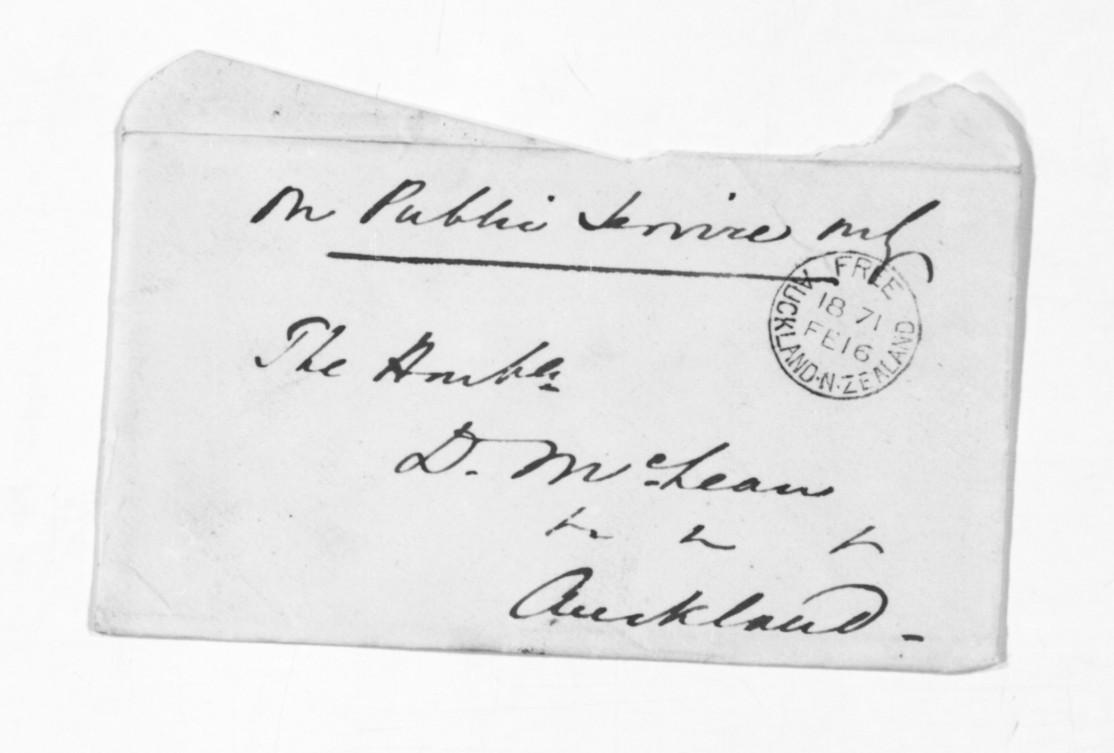 On Public Service only
FREE
AUCKLAND·N·ZEALAND
18 71
FE 16
The Honble
D. McLean
Auckland -